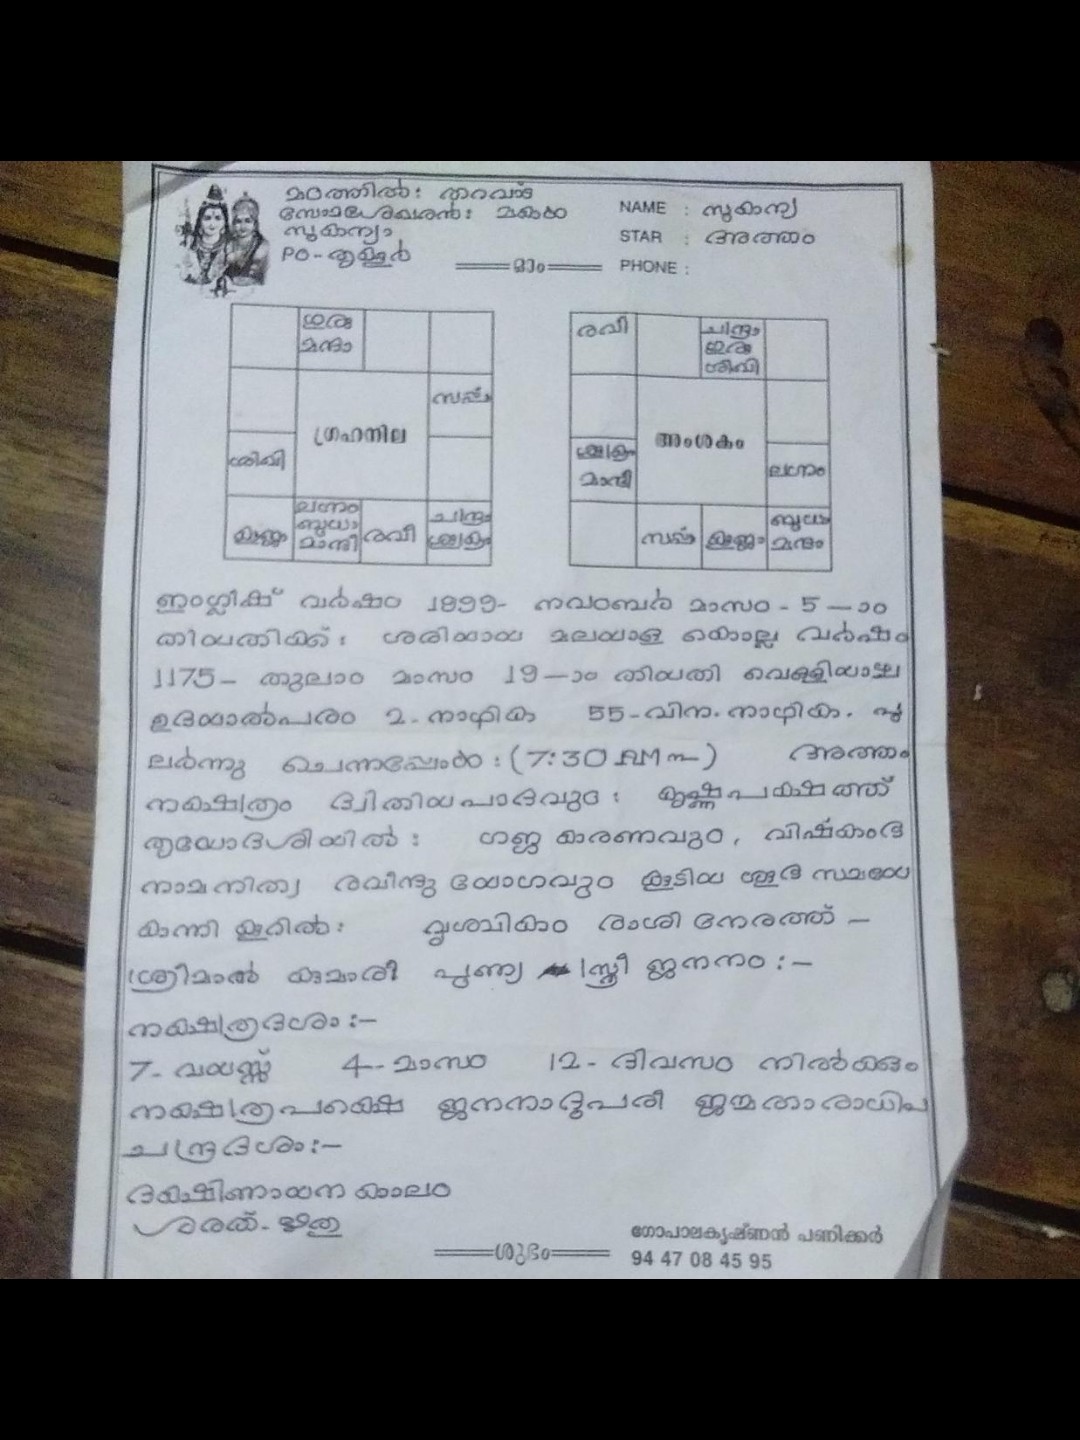 മഠത്തിൽ: തറവാട്
സോമശേഖരൻ: മകൾ
സുകന്യാ
PO-തൃളൂർ
ഓം
NAME : സുകന്യ
STAR : അത്തം
PHONE :
ഗുരു
മന്ദാ
സർപ്പം
ഗ്രഹനില
ശിഖി
കുജ
ലഗ്നം
ബുധാ
മാന്ദി
രവി
ചന്ദ്രം
ശുക്രം
രവി
ചന്ദ്രം
ഗുരു
ശിഖി
അംശകം
ശുക്രം
മാന്ദി
ലഗ്നം
സർപ്പ
കുജാ
ബുധാ
മന്ദം
ഇംഗ്ലീഷ് വർഷം 1999- നവംബർ മാസം - 5 —ാം
തിയതിക്ക്: ശരിയായ മലയാള കൊല്ല വർഷം
1175- തുലാം മാസം 19—ാം തിയതി വെള്ളിയാഴ്ച
ഉദയാൽപരം 2-നാഴിക 55-വിന.നാഴിക. പു
ലർന്നു ചെന്നപ്പോൾ:(7:30 AM ന) അത്തം
നക്ഷത്രം ദ്വിതിയപാദവും: കൃഷ്ണപക്ഷത്ത്
ത്രയോദശിയിൽ: ഗജ കാരണവും, വിഷ്കംഭ
നാമനിത്യ രവിന്ദു യോഗവും കൂടിയ ശുഭ സമയേ
കന്നി കൂറിൽ: വൃശ്ചികം രാശി നേരത്ത് -
ശ്രീമാൽ കുമാരീ പുണ്യ സ്ത്രീ ജനനം:-
നക്ഷത്രദശാ:-
7-വയസ്സ് 4-മാസം 12-ദിവസം നിൽക്കും
നക്ഷത്രപക്ഷെ ജനനാദുപരി ജന്മതാരാധിപ
ചന്ദ്രദശാ:-
ദക്ഷിണായന കാലം
ശരത്-ഋതു
ശുഭം
ഗോപാലകൃഷ്ണൻ പണിക്കർ
94 47 08 45 95